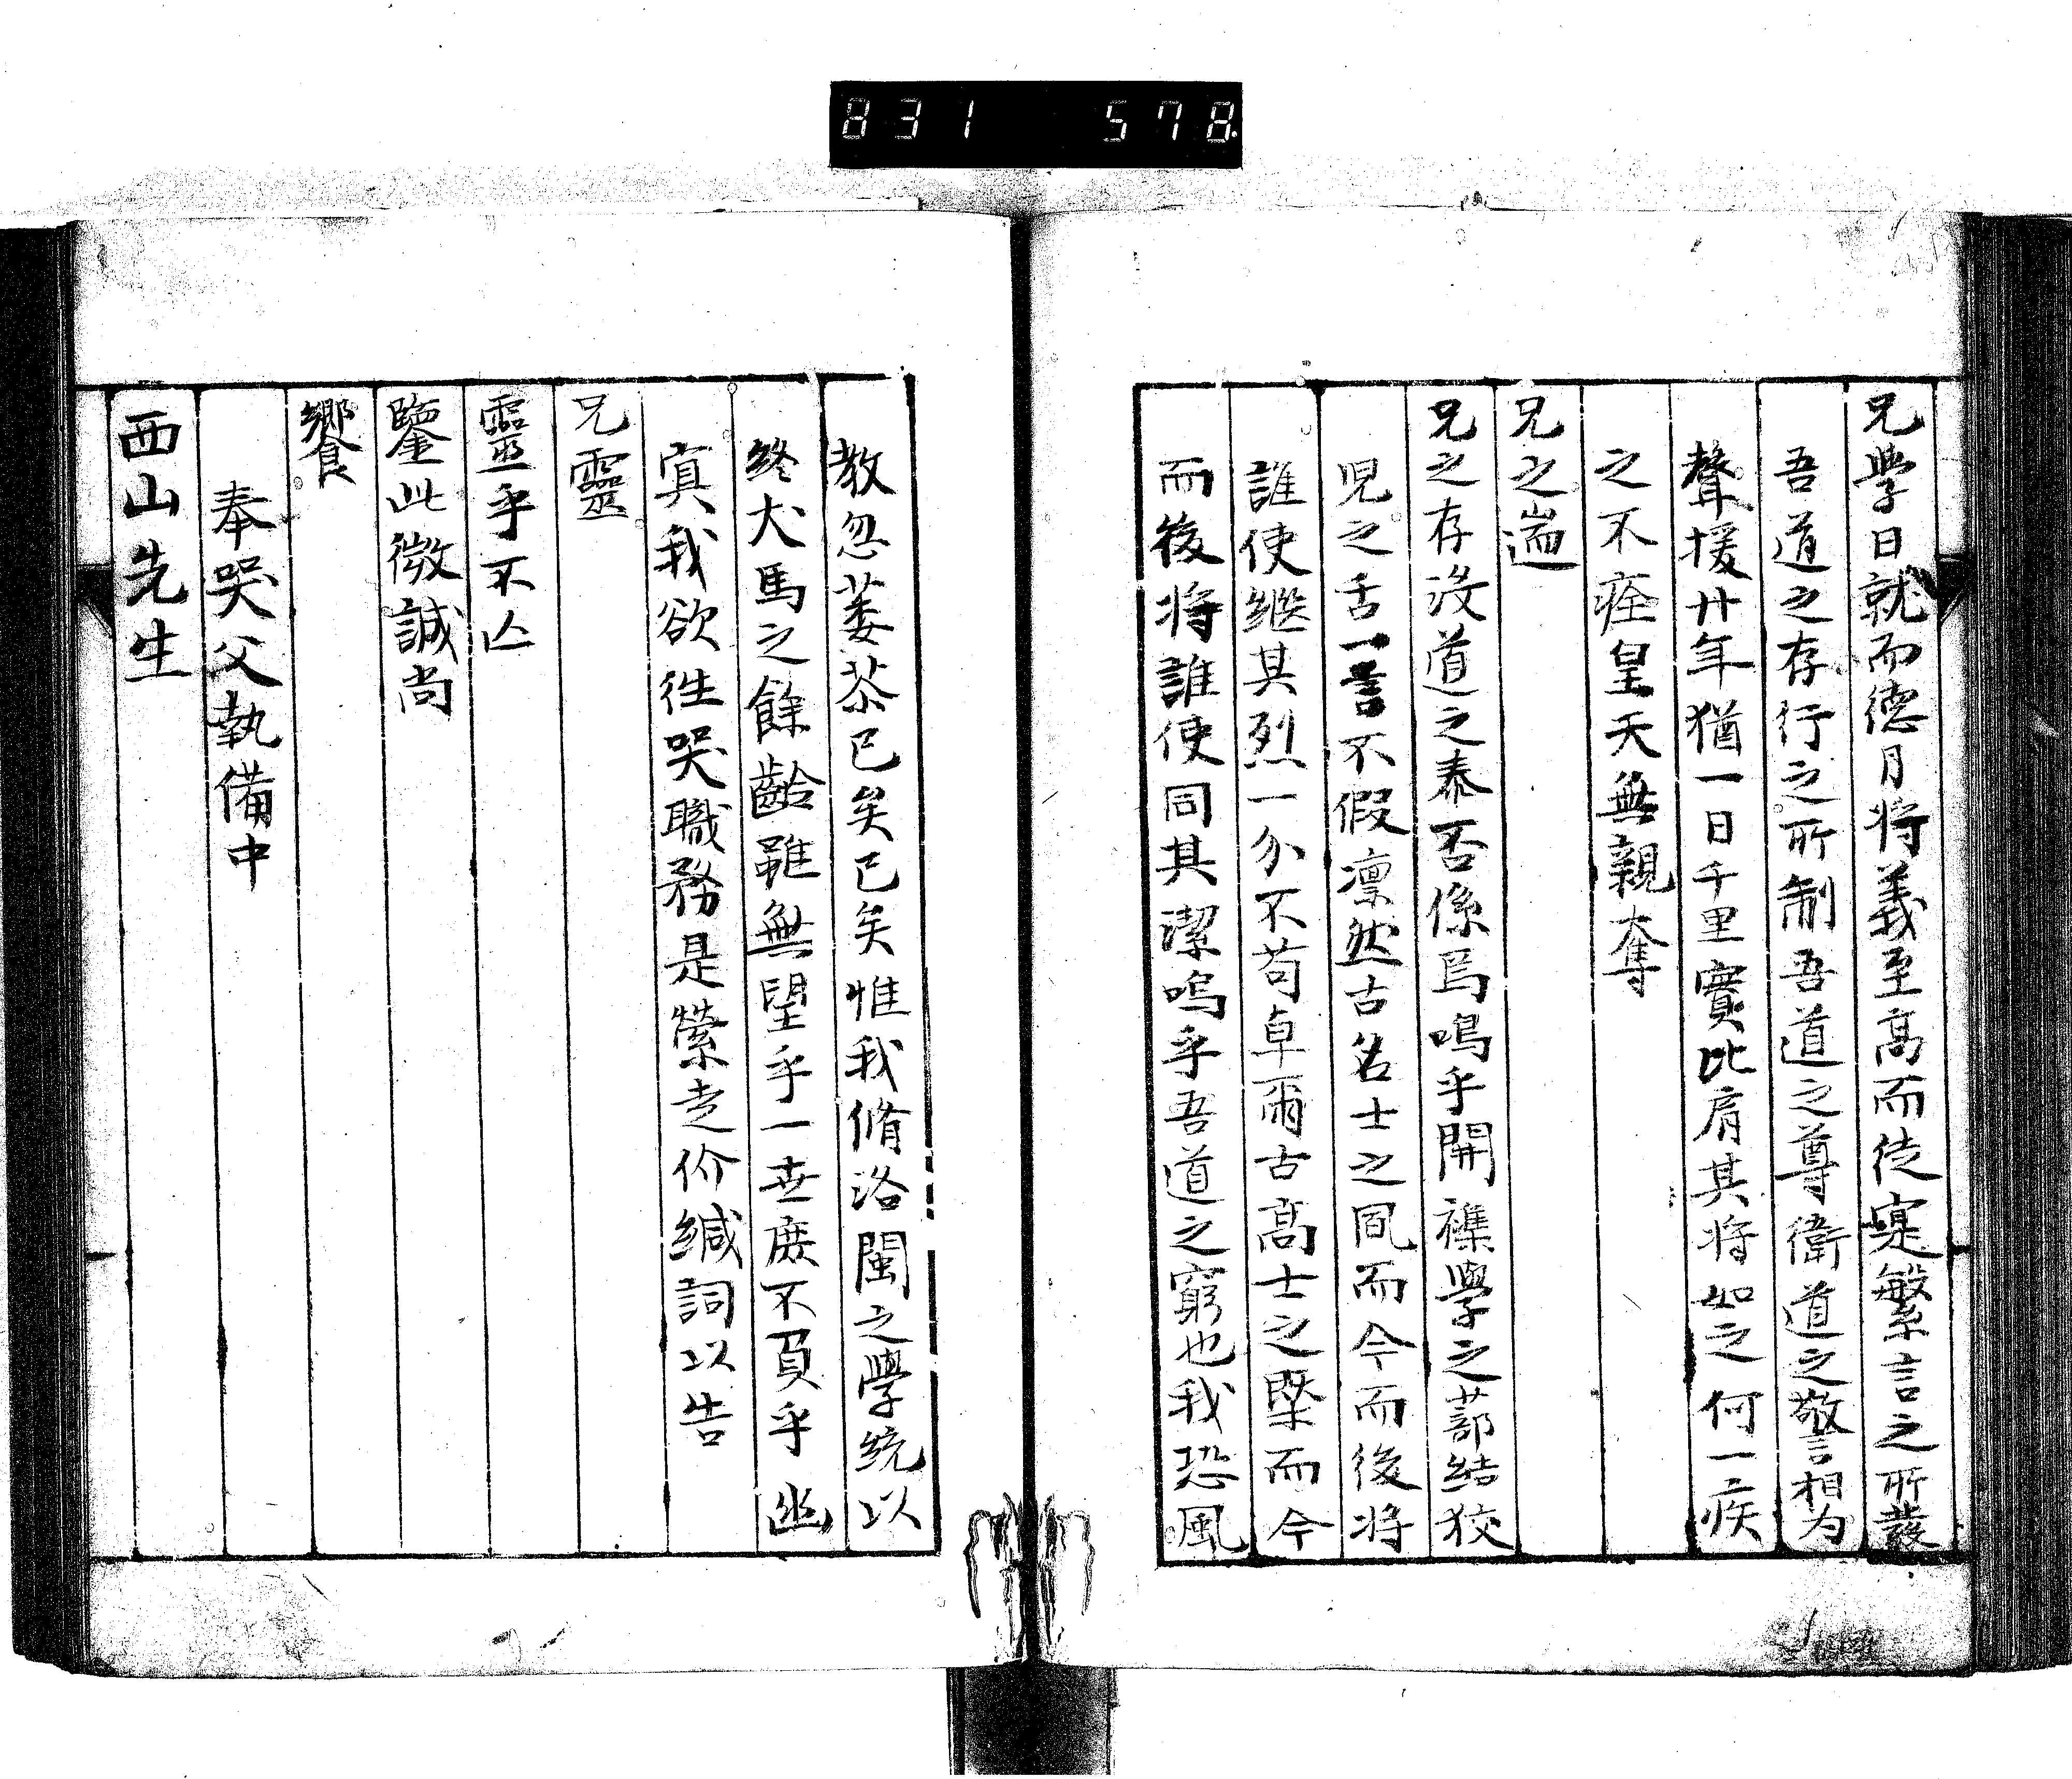 831 578
兄學日就而德月將義至高而徒寔繁言之所發
吾道之存行之所制吾道之尊衛道之敬言相为
聲援廿年猶一日千里實比肩其将如之何一疾
之不痊皇天無親奪
兄之遄
兄之存沒道之泰否係焉嗚乎開襍學之蔀結狡
児之舌一言不假凛然古名士之風而今而後将
誰使継其烈一介不苟卓爾古髙士之槩而今
而後将誰使同其潔嗚乎吾道之窮也我恐風
教忽萎苶已矣已矣惟我脩洛閩之學統以
終犬馬之餘齡雖無望乎一世庶不負乎幽
冥我欲往哭職務是縈走价緘詞以告
兄靈
靈乎不亾
鑒此微誠尚
饗
奉哭父執備中
西山先生